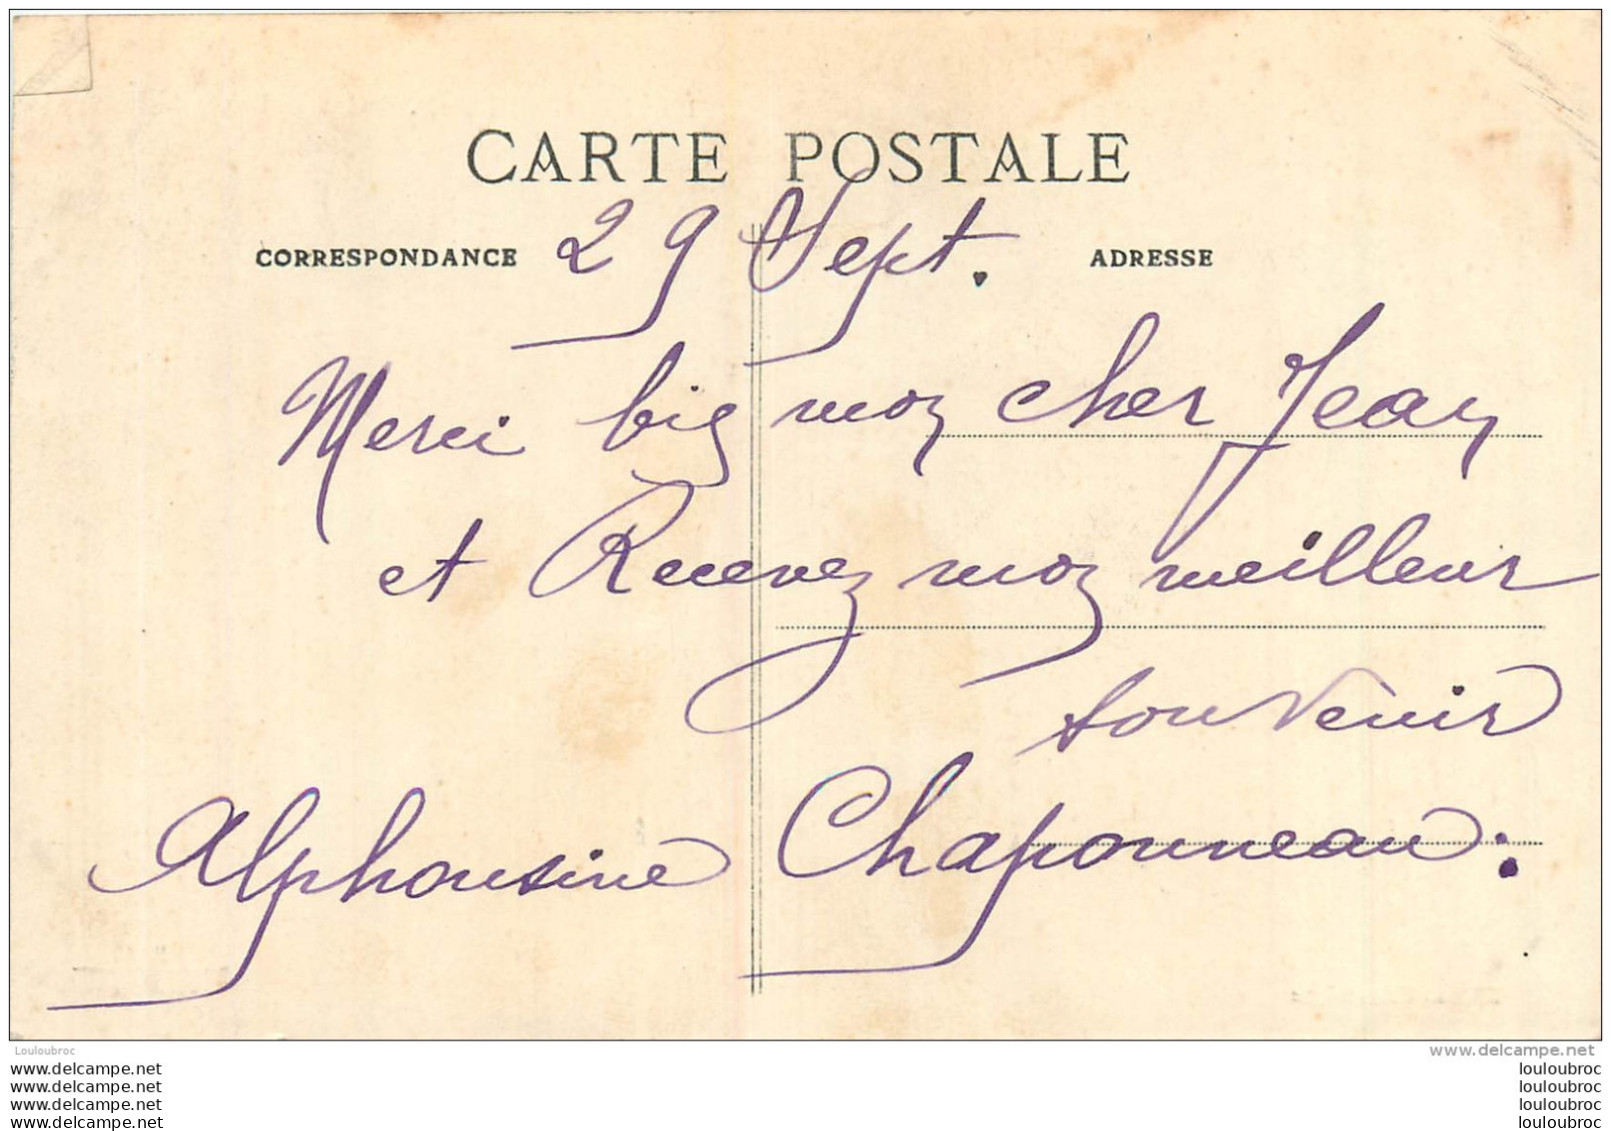 CARTE POSTALE
CORRESPONDANCE 29 Sept. ADRESSE
Merci bien mon cher Jean
et Recevez mon meilleur
souvenir
Alphonsine Chaponneau.
Louloubroc
www.delcampe.net
www.delcampe.net
www.delcampe.net
www.delcampe.net
www.delcampe.net
louloubroc
louloubroc
louloubroc
louloubroc